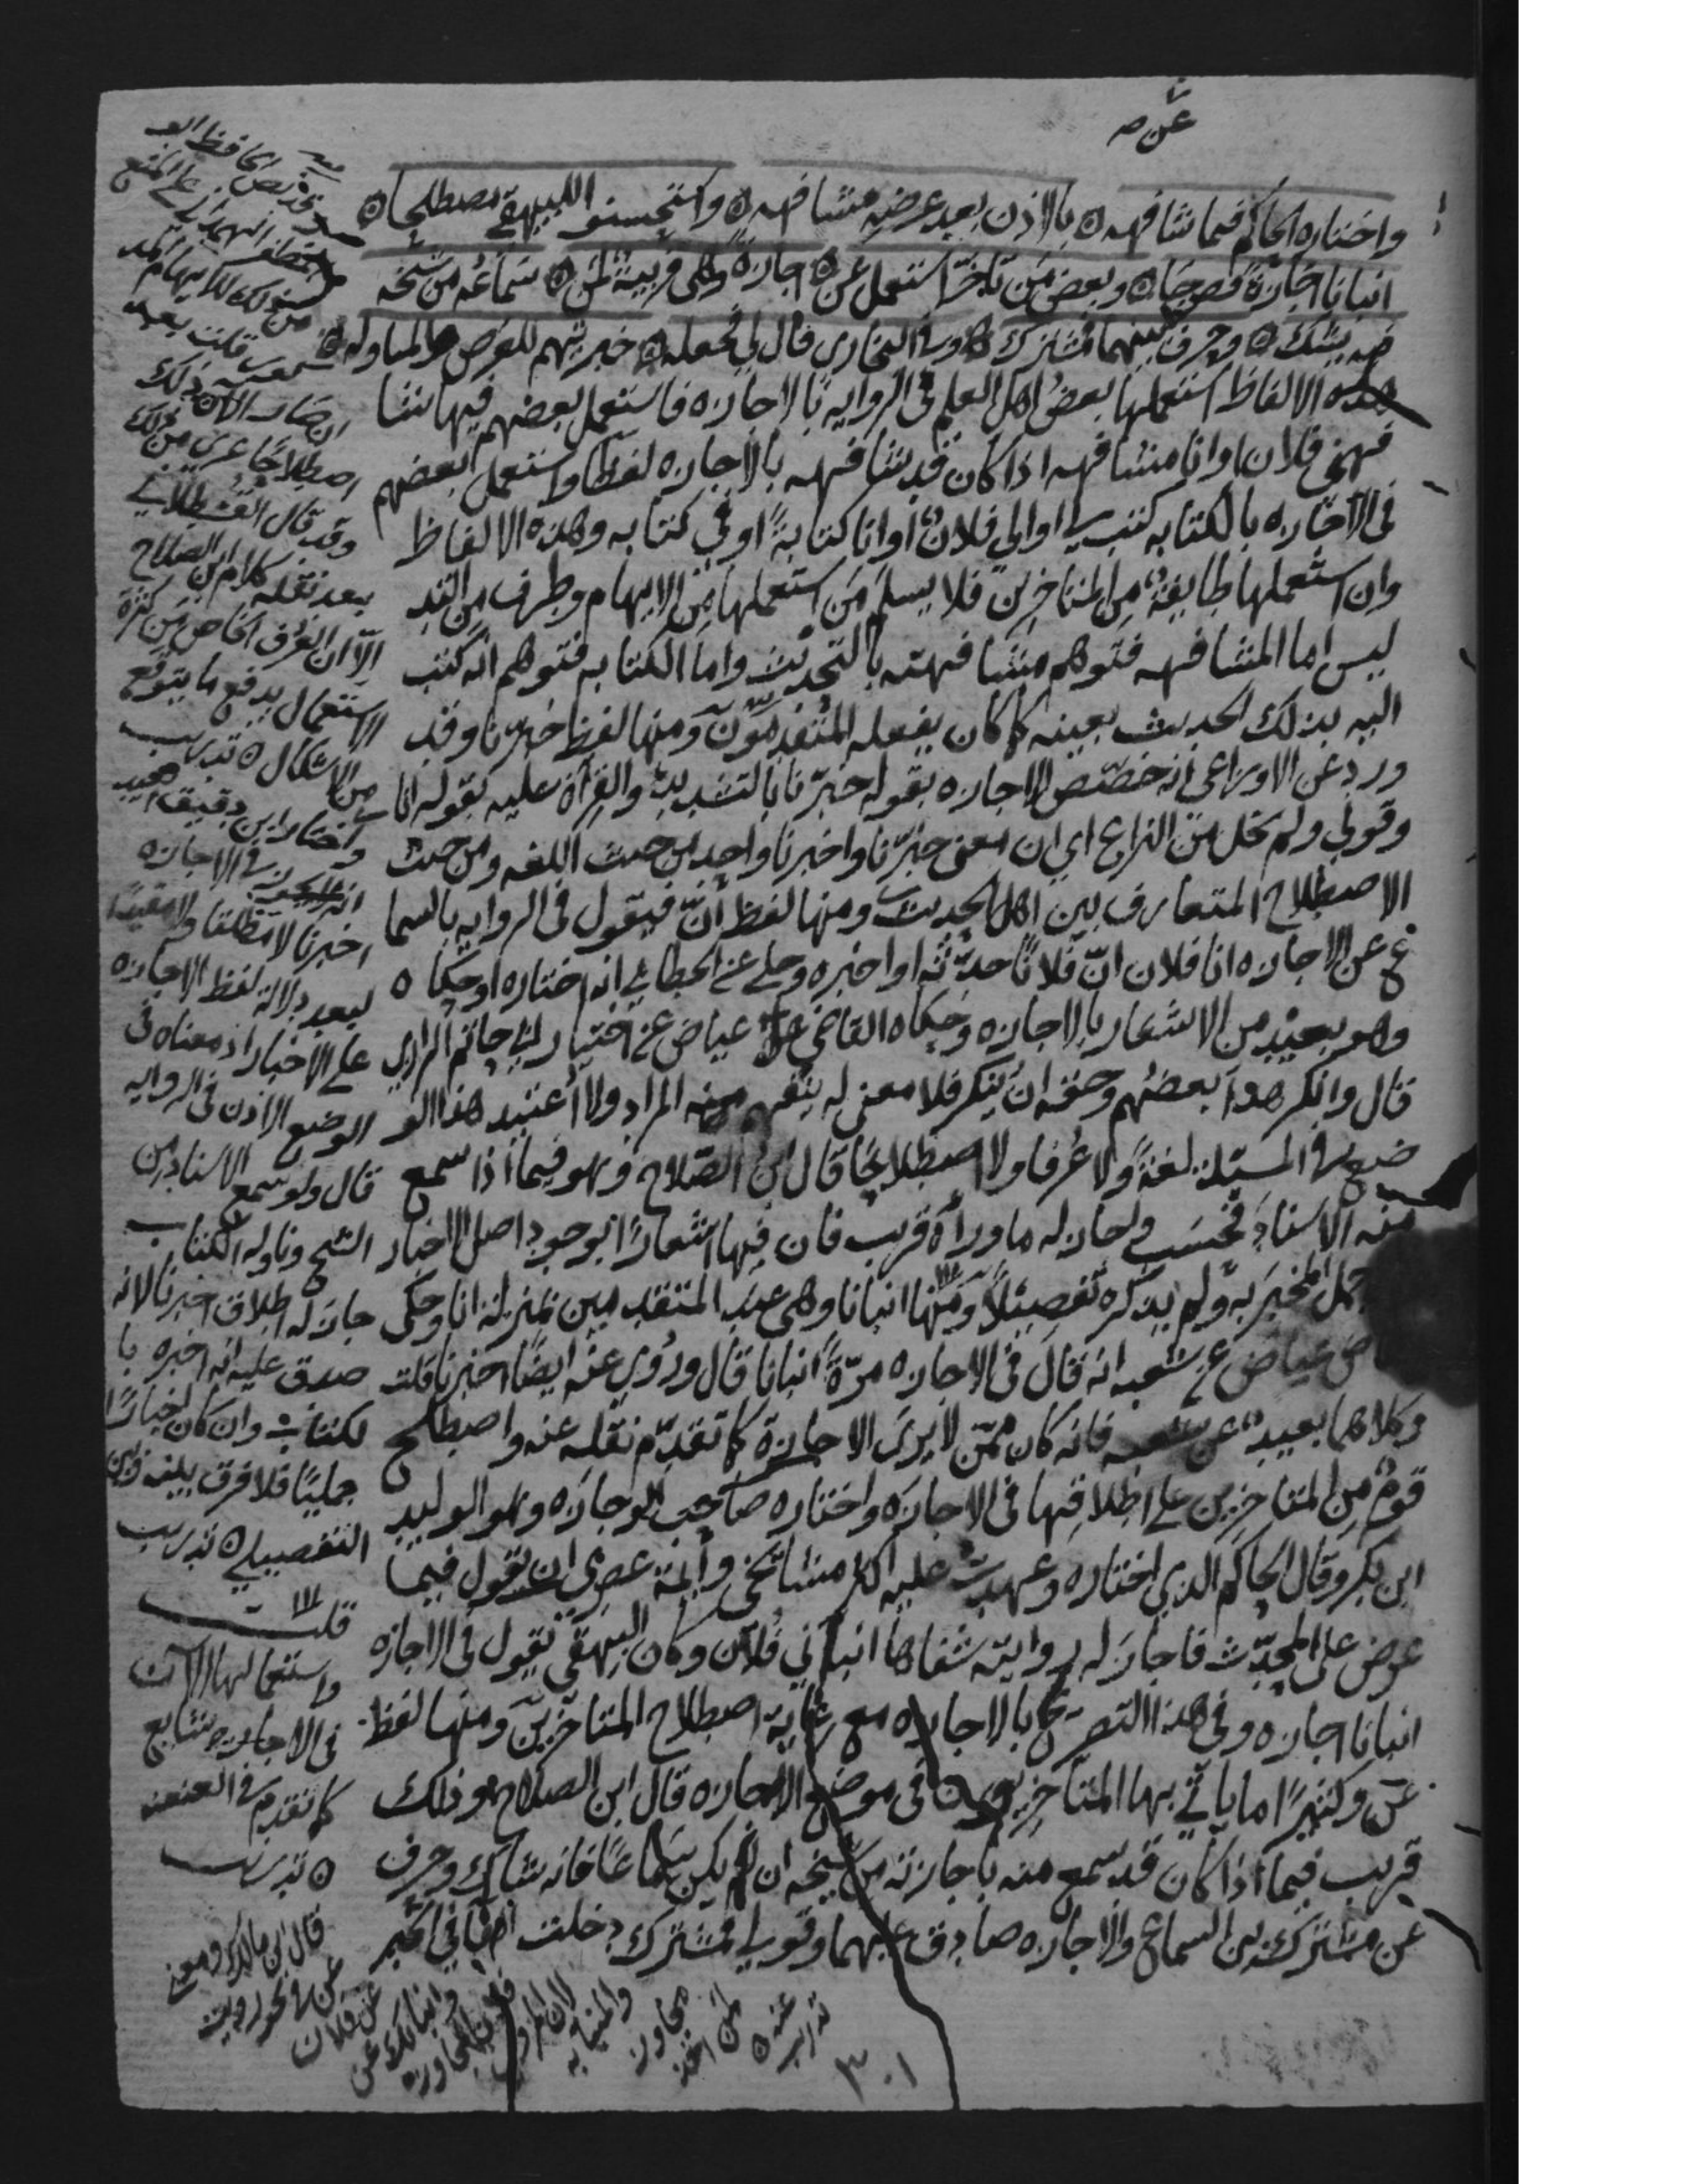 عن ص
واختاره الحاكم فيما شافهه ه بالاذن بعد عرضه مشافهه ه واستحسنوا للبيهقي مصطلحا ه
انبانا اجازة فصرحا ه وبعض من تاخر استعمل عن ه اجازة وهي قريبة لمن ه سماعه من شيخه
فيه يشك ه وحرف عن بينهما فمشترك ه وفي البخاري قال لي فجعله ه حيريهم للعرض والمناوله ه
هذه الالفاظ استعملها بعض اهل العلم في الروايه بالاجازه فاستعمل بعضهم فيها شا
فهني فلان اوانا مشافهه اذا كان قد شافهه بالاجازه لفظا واستعمل بعضهم
في الاجازه بالكتابه كتب لي او الي فلان اوانا كتابة او في كتابه وهذه الالفاظ
وان استعملها طايفة من المتاخرين فلا يسلم من استعملها من الايهام وطرف من التد
ليس اما المشافهه فتوهم مشافهته بالتحديث واما الكتابه فتوهم انه كتب
اليه بذلك الحديث بعينه كما كان يفعله المتقدمون ومنها لفظ خبرنا وقد
ورد عن الاوزاعي انه خصص الاجازه بقوله خبرنا بالتشديد والقراة عليه بقوله انا
وقولي ولم يخل من النزاع اي ان معنى خبرنا واخبرنا واحد من حيث اللغه ومن حيث
الاصطلاح المتعارف بين اهل الحديث ومنها لفظ ان فيقول في الروايه بالسما
ع عن الاجازه انا فلان ان فلانا حدثه او اخبره وحكي عن الخطابي انه اختاره او حكاه
وهو بعيد من الاشعار بالاجازه وحكاه القاضي عياض عن اختيار ابي حاتم الرازي
قال وانكر هذا بعضهم وحقه ان ينكر فلا معنى له يتفهم منه المراد ولا اعتيد هذا الو
ضع في المسئلة لغة ولا عرفا ولا اصطلاحا قال ابن الصلاح وهو فيما اذا سمع
منه الاسناد فحسب واجاز له ما وراه قريب فان فيها اشعارا بوجود اصل الاخبار
اجمل المخبر به ولم يذكره تفصيلا ومنها انبانا وهي عند المتقدمين بمنزلة انا وحكى
عياض عن شعبه انه قال في الاجازه مرة انبانا قال وروي عنه ايضا اخبرنا قلت
وكلاهما بعيد عن شعبه فانه كان ممن لا يرى الاجازة كما تقدم نقله عنه واصطلح
قوم من المتاخرين على اطلاقها في الاجازه واختاره صاحب الوجازه وهو الوليد
ابن بكر وقال الحاكم الذي اختاره وعهدت عليه اكثر مشائخي وائمة عصري ان يقول فيما
عرض على المحدث فاجاز له روايته شفاها انباني فلان وكان البيهقي يقول في الاجازه
انبانا اجازه وفي هذا التصريح بالاجازه مع رعاية اصطلاح المتاخرين ومنها لفظ
عن وكثيرا ما ياتي بها المتاخرون في موضع الاجازه قال ابن الصلاح وذلك
قريب فيما اذا كان قد سمع منه باجازته من شيخه ان لم يكن سماعا فانه شاك وحرف
عن مشترك بين السماع والاجازه صادق عليهما وقولي فمشترك دخلت الفا في الخبر
قد نص الحافظ ابو
المظفر الهمداني على المنع
من ذلك للايهام المذ
كور قلت بعد
ان صار الان ذلك
اصطلاحا عري من ذلك
وقد قال القسطلاني
بعد نقله كلام ابن الصلاح
الا ان العرف الخاص من كثرة
الاستعمال يدفع ما يتوقع
من الاشكال ه تدريب
واختار ابن دقيق العيد
انه لا يجوز في الاجازه
اخبرنا لا مطلقا ولا مقيدا
لبعد دلالة لفظ الاجازه
على الاخبار اذ معناه في
الوضع الاذن في الروايه
قال ولو سمع الاسناد من
الشيخ وناوله الكتاب
جاز له اطلاق اخبرنا لانه
صدق عليه انه اخبره با
لكتاب وان كان اخبارا
جمليا فلا فرق بينه وبين
التفصيلي ه تدريب
قلت
واستعمالها الان
في الاجازه شايع
كما تقدم في العنعنه
ه تدريب
قال ابن مالك ومعنى
عن في نحو رويت
عن فلان
وانباتك عن
فلان المجاوزه
لان المروي
والمنبا به
مجاوز
لمن اخذ
عنه ه
تدريب
٣٠١